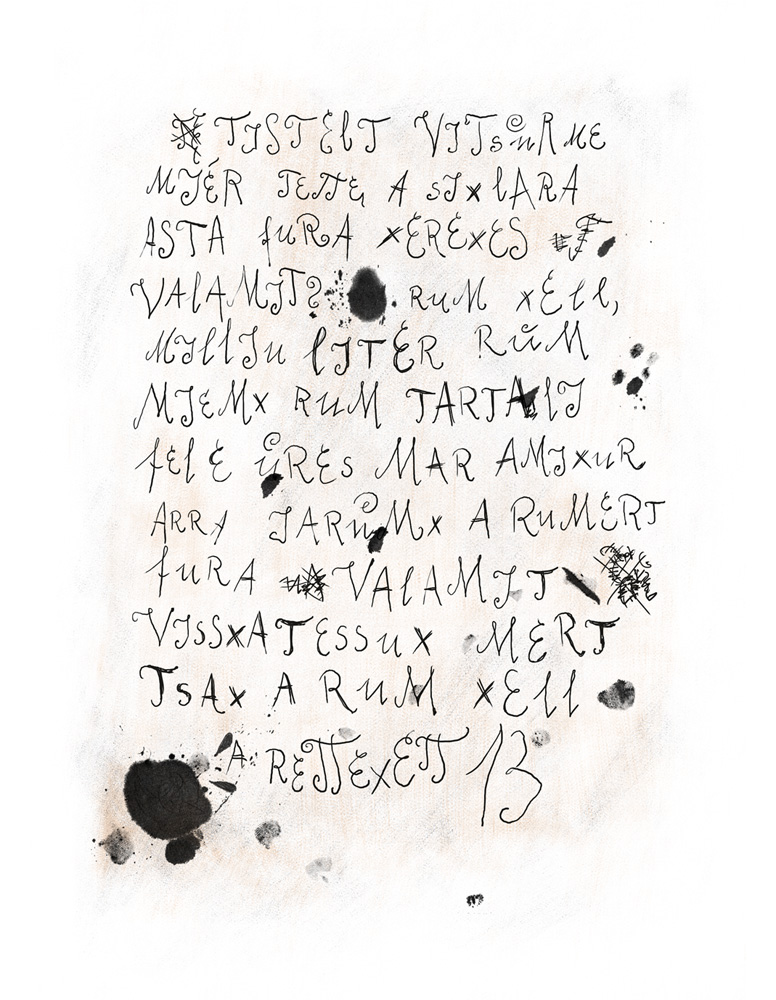 TISTElT VITsůRME
MIÉR TETTE A sIxlARA
ASTA fuRA xERExES
VAlAMIT? RuM xEll,
MIllIu lITER RŭM
MIEMx RUM TARTAlI
fElE ůREs MAR AMIxuR
ARRA IARůMx A RuMERT
fuRA VAlAMIT
VISSxATESSuX MERT
TsAx A RuM xEll
A RETTExETT B